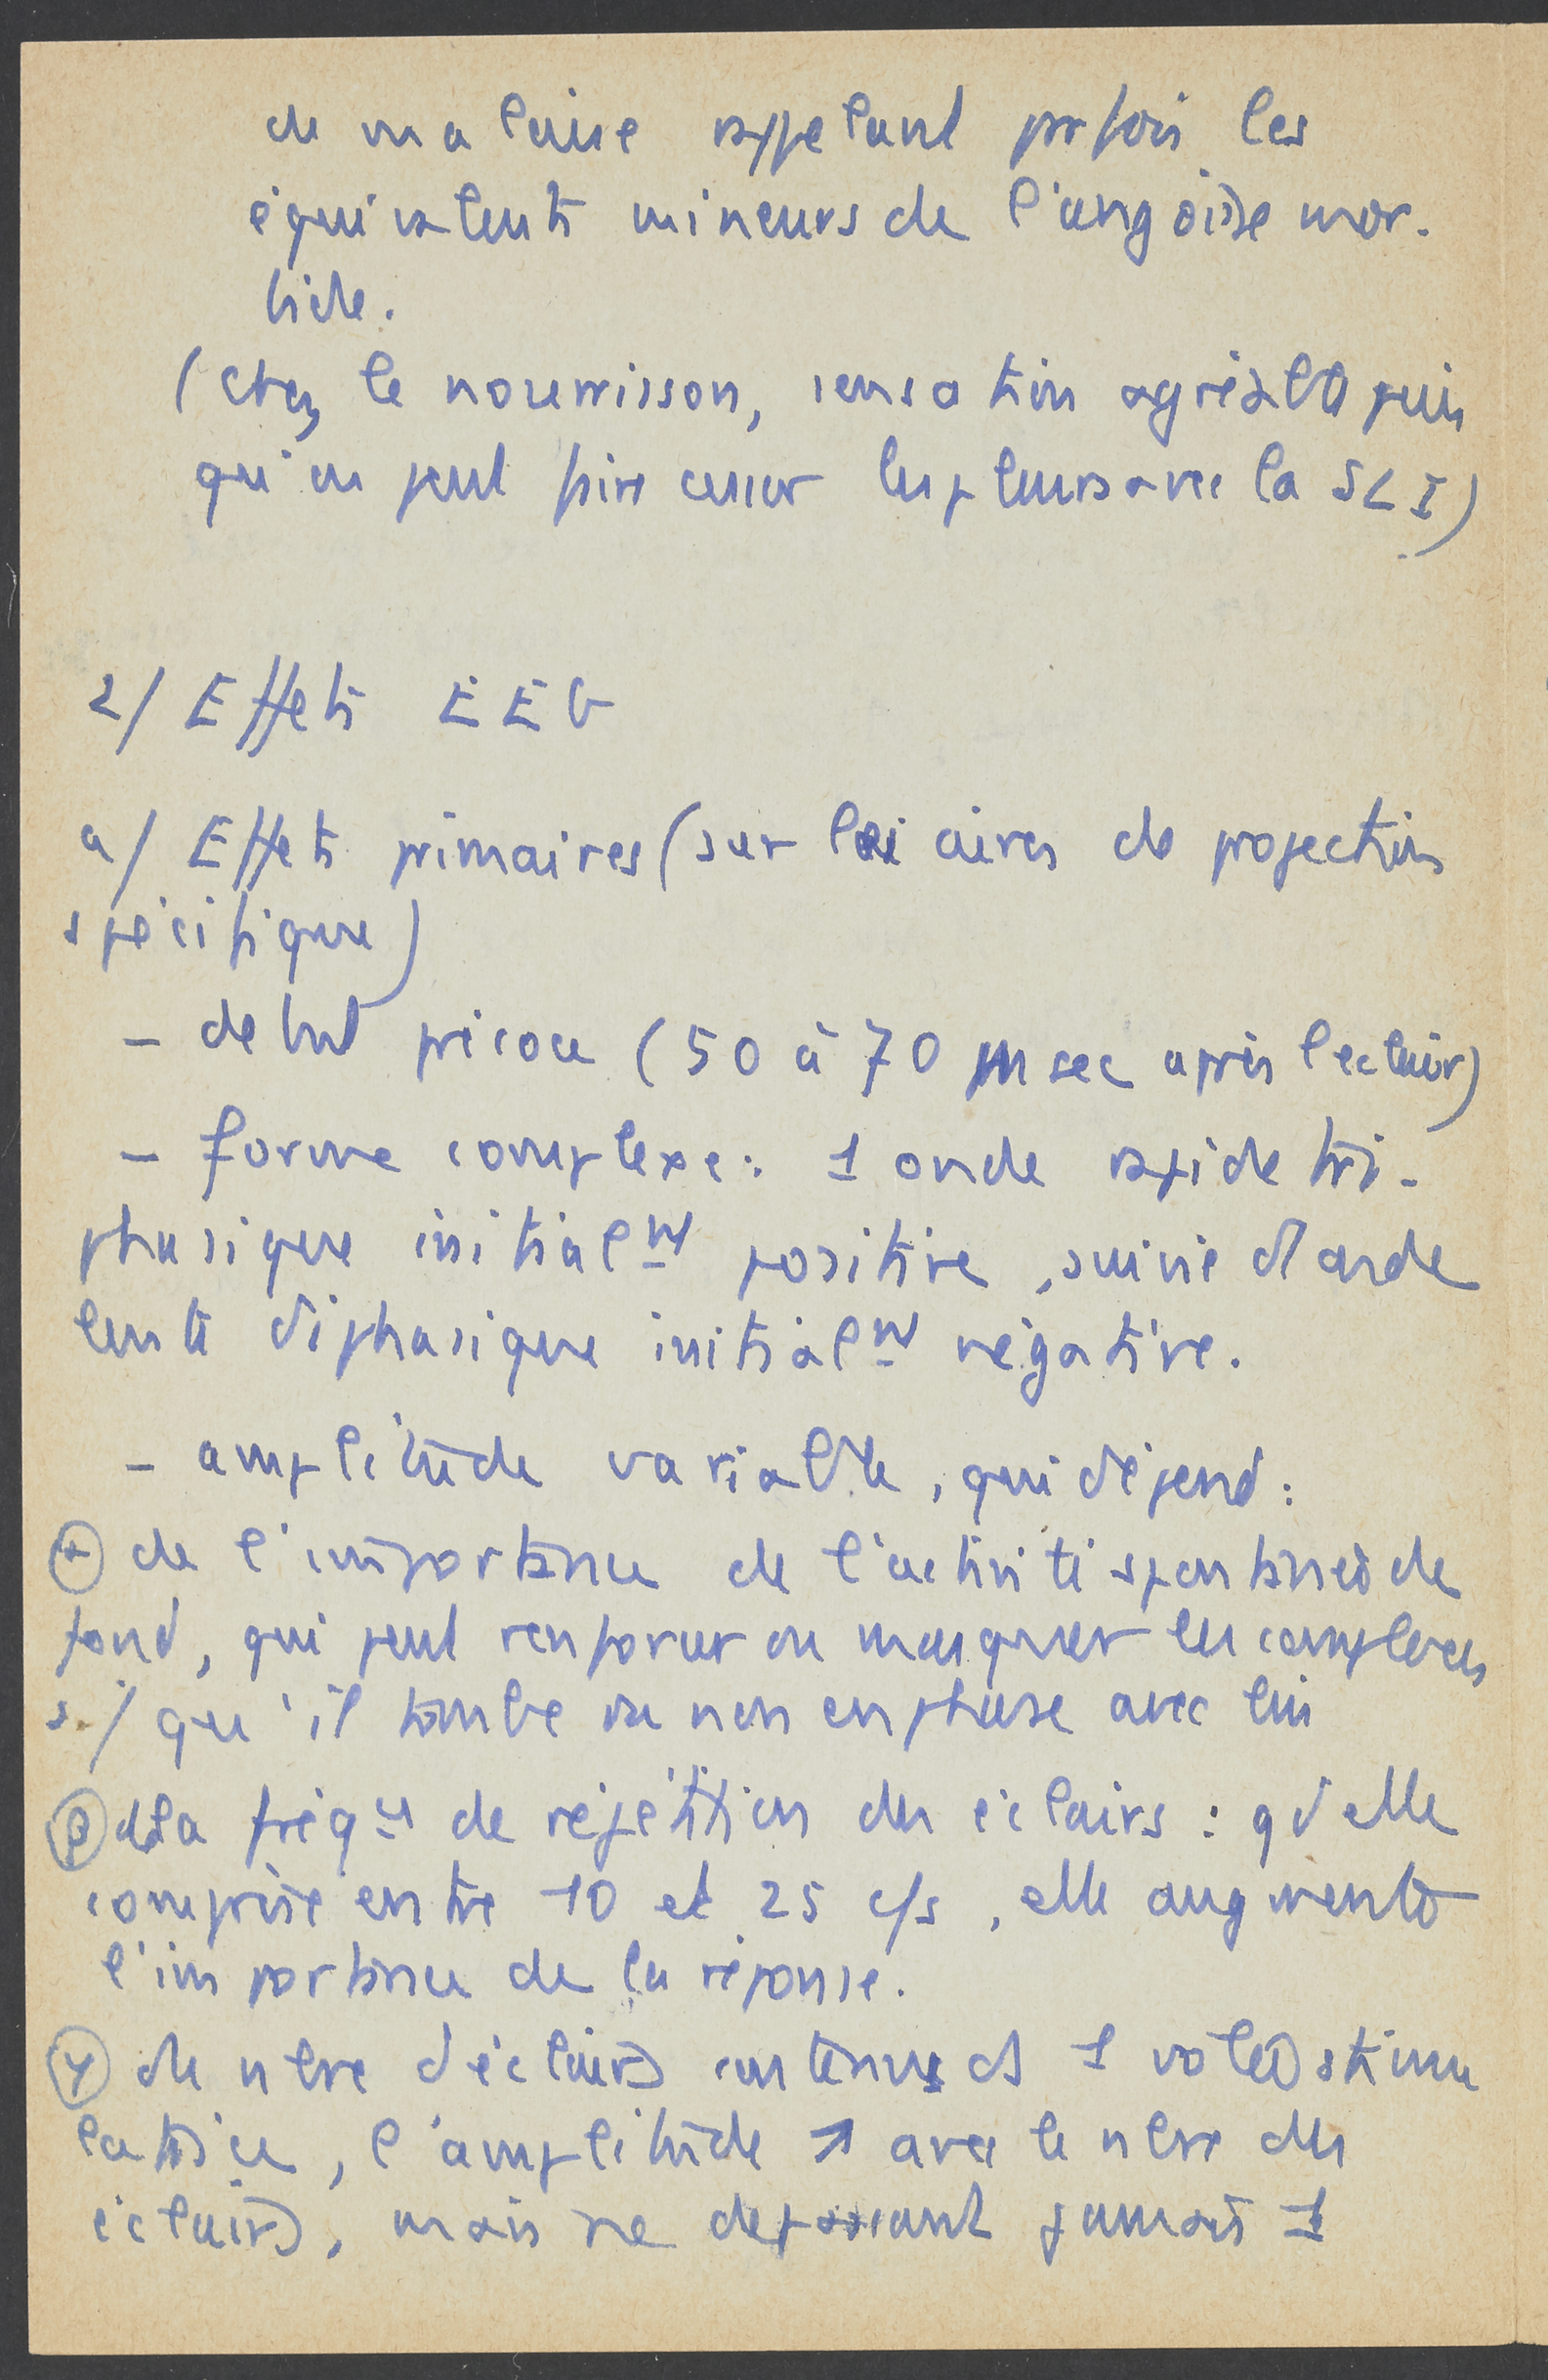 de malaise rappelant parfois les
équivalents mineurs de l'angoisse mor-
bide.
(chez le nourrisson, sensation agréable puis
qu'on peut faire cesser les pleurs avec la SLI)
2/ Effets EEG
a/ Effets primaires (sur les aires de projection
spécifique)
- debut précoce (50 à 70 msec après l'eclair)
- forme complexe : 1 onde rapide tri-
phasique initialnt positive, suivie d'onde
lente diphasique initialnt négative.
- amplitude variable, qui dépend :
α de l'importance de l'activité spontanée de
fond, qui peut renforcer ou masquer les complexes
s./ qu'il tombe ou non en phase avec lui
β de la fréqce de répétition des éclairs : qd elle
comprise entre 10 et 25 c/s, elle augmente
l'importance de la réponse.
γ du nbre d'éclairs contenus ds 1 volée stimu
latrice, l'amplitude ↗ avec le nbre des
éclairs, mais ne depassant jamais 1